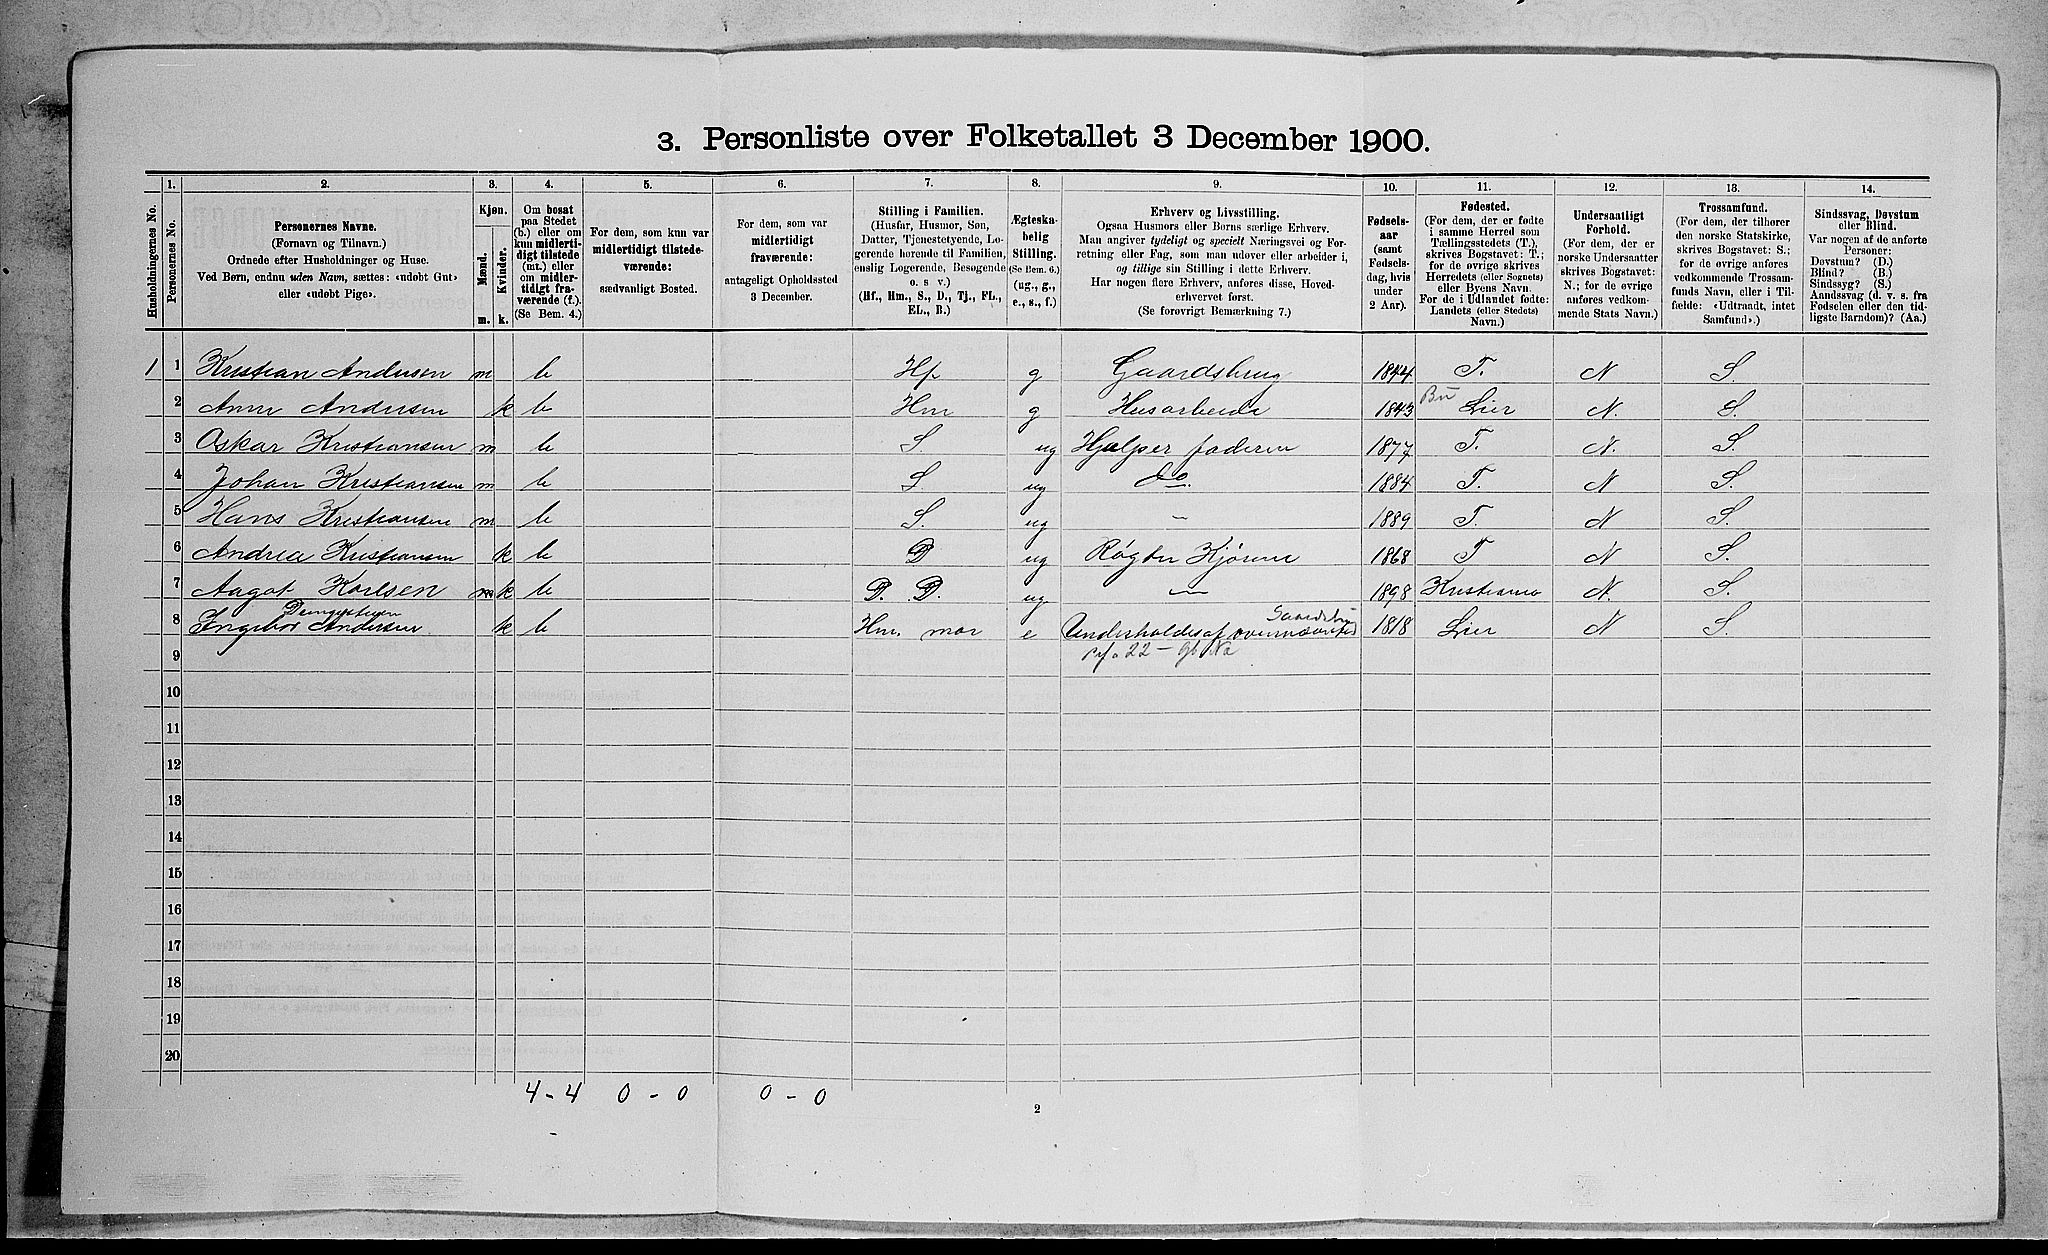 3. Personliste over Folketallet 3 December 1900.
1. 2. 3. 4. 5. 6. 7. 8. 9. 10. 11. 12. 13. 14.
Husholdningernes No.
Personernes No.
Personernes Navne.
(Fornavn og Tilnavn.)
Ordnede efter Husholdninger og Huse.
Ved Børn, endnu uden Navn, sættes: «udøbt Gut»
eller «udøbt Pige».
Kjøn.
Mænd.
Kvinder.
m. k.
Om bosat
paa Stedet
(b.) eller om
kun midlerti-
digt tilstede
(mt.) eller
om midler-
tidigt fra-
værende (f.).
(Se Bem. 4.)
For dem, som kun var
midlertidigt tilstede-
værende:
sædvanligt Bosted.
For dem, som var
midlertidigt
fraværende:
antageligt Opholdssted
3 December.
Stilling i Familien.
(Husfar, Husmor, Søn,
Datter, Tjenestetyende, Lo-
gerende hørende til Familien,
enslig Logerende, Besøgende
o. s v.)
(Hf., Hm., S., D., Tj., FL.,
EL., B.)
Ægteska-
belig
Stilling.
(Se Bem. 6.)
(ug., g.,
e., s., f.)
Erhverv og Livsstilling.
Ogsaa Husmors eller Børns særlige Erhverv.
Man angiver tydeligt og specielt Næringsvei og For-
retning eller Fag, som man udøver eller arbeider i,
og tillige sin Stilling i dette Erhverv.
Har nogen flere Erhverv, anføres disse, Hoved-
erhvervet først.
(Se forøvrigt Bemærkning 7.)
Fødsels-
aar
(samt
Fødsels-
dag, hvis
under
2 Aar).
Fødested.
(For dem, der er fødte
i samme Herred som
Tællingsstedets (T.),
skrives Bogstavet: T.;
for de øvrige skrives
Herredets (eller Sognets)
eller Byens Navn.
For de i Udlandet fødte:
Landets (eller Stedets)
Navn.)
Undersaatligt
Forhold.
(For dem, der er
norske Undersaatter
skrives Bogstavet:
N.; for de øvrige
anføres vedkom-
mende Stats Navn.)
Trossamfund.
(For dem, der tilhører
den norske Statskirke,
skrives Bogstavet: S.;
for de øvrige anføres
vedkommende Trossam-
funds Navn, eller i Til-
fælde: «Udtraadt, intet
Samfund».)
Sindssvag, Døvstum
eller Blind.
Var nogen af de anførte
Personer:
Døvstum? (D.)
Blind? (B.)
Sindssyg? (S.)
Aandssvag (d. v. s. fra
Fødselen eller den tid-
ligste Barndom)? (Aa.)
1 1 Kristian Andersen m b Hf g Gaardsbrug 1844 T. N S.
2 Anne Andersen k b Hm g Husarbeide 1843 Bu Lier N. S.
3 Oskar Kristiansen m b S. ug Hjælper faderen 1877 T. N. S.
4 Johan Kristiansen m b S. ug do. 1884 T. N S.
5 Hans Kristiansen m b S. ug — 1889 T. N S.
6 Andrea Kristiansen k b D ug Røgter Kjørene 1868 T N S.
7 Aagot Karlsen m k b D. D. ug — 1898 Kristiania N. S.
8 Ingebor Andersen k b Hm. mor e Underholdes af 1818 Lier N S.
9
10
11
12
13
14
15
16
17
18
19
20
4 - 4 0 - 0 0 - 0
2